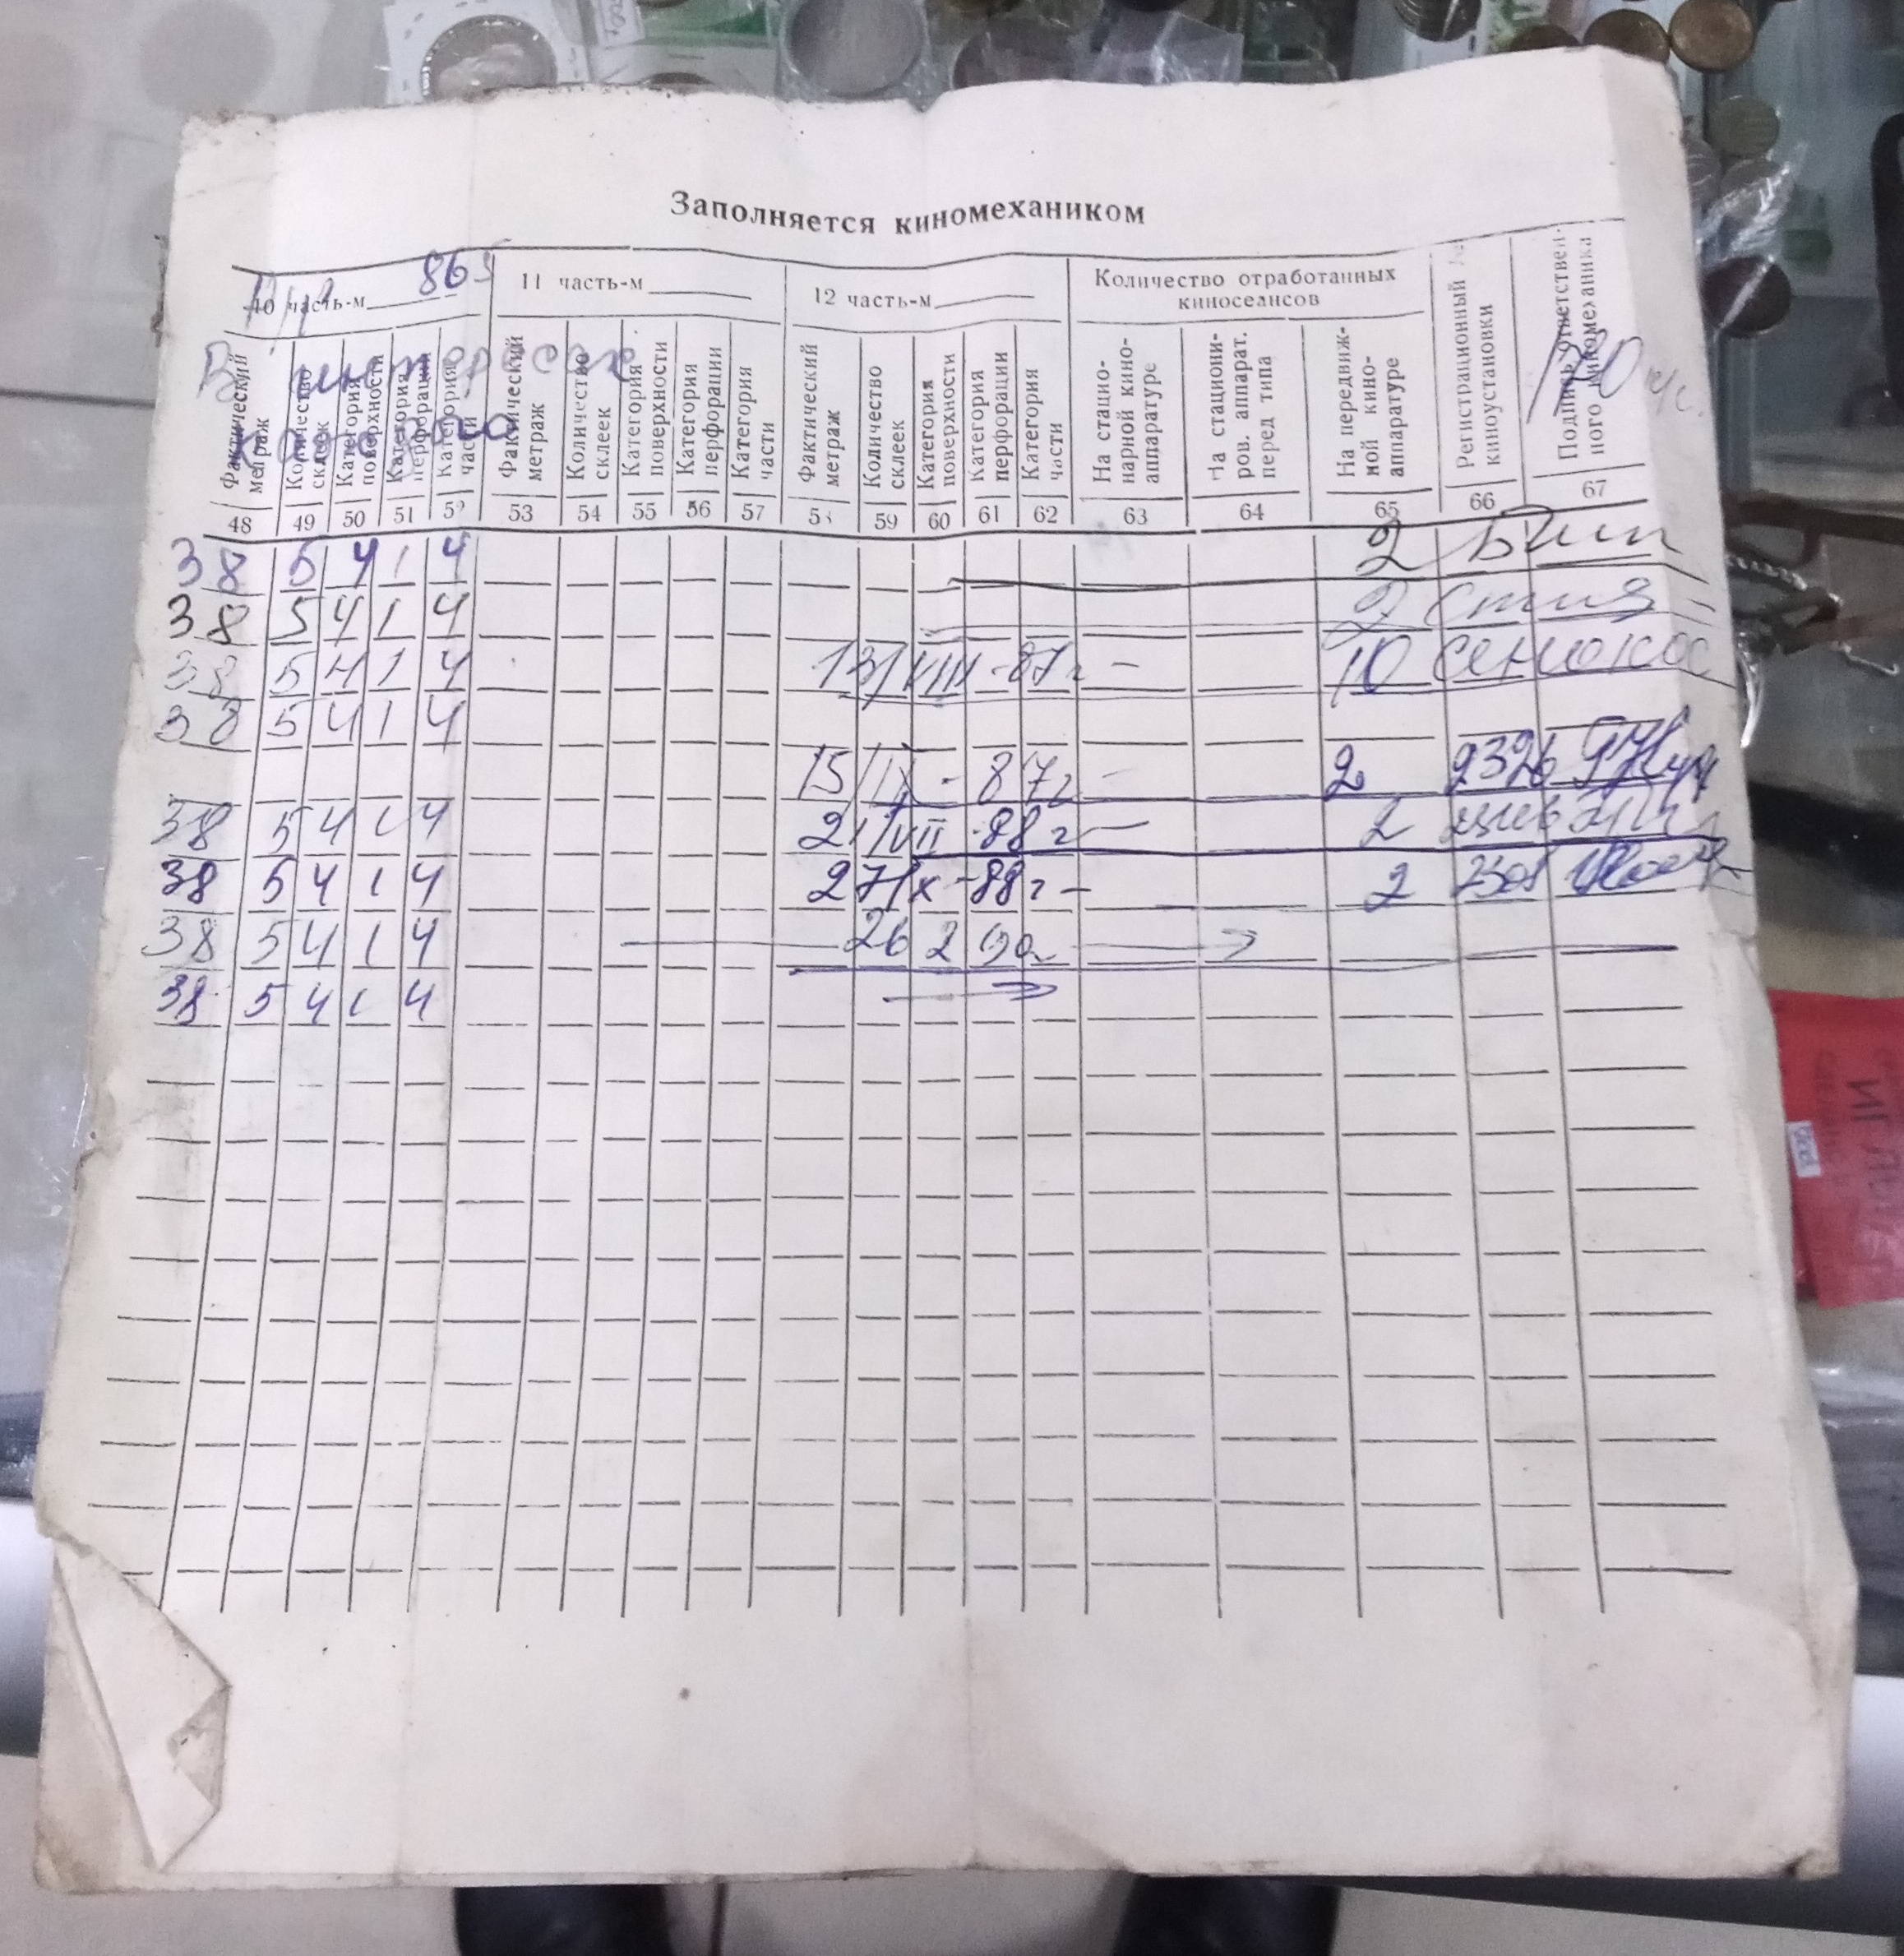 Заполняется киномехаником
10 часть-м 865 11 часть-м 12 часть-м Количество отработанных киносеансов Регистрационный киноустановки Подпись ответственного киномеханика
В интересах каждого 170
Фактический метраж Количество склеек Категория поверхности Категория перфорации Категория части Фактический метраж Количество склеек Категория поверхности Категория перфорации Категория части Фактический метраж Количество склеек Категория поверхности Категория перфорации Категория части На стацио-нарной кино-аппаратуре На стациони-ров. аппарат. перед типа На передвиж-ной кино-аппаратуре
48 49 50 51 52 53 54 55 56 57 58 59 60 61 62 63 64 65 66 67
38 5 4 1 4 2
38 5 4 1 4 2
38 5 4 1 4 13/VIII-87г - 10 сенокос
38 5 4 1 4
15/IX-87г - 2 2326
38 5 4 1 4 21/VII-88г - 2
38 5 4 1 4 27/X-88г - 2
38 5 4 1 4 26 2 90г
38 5 4 1 4